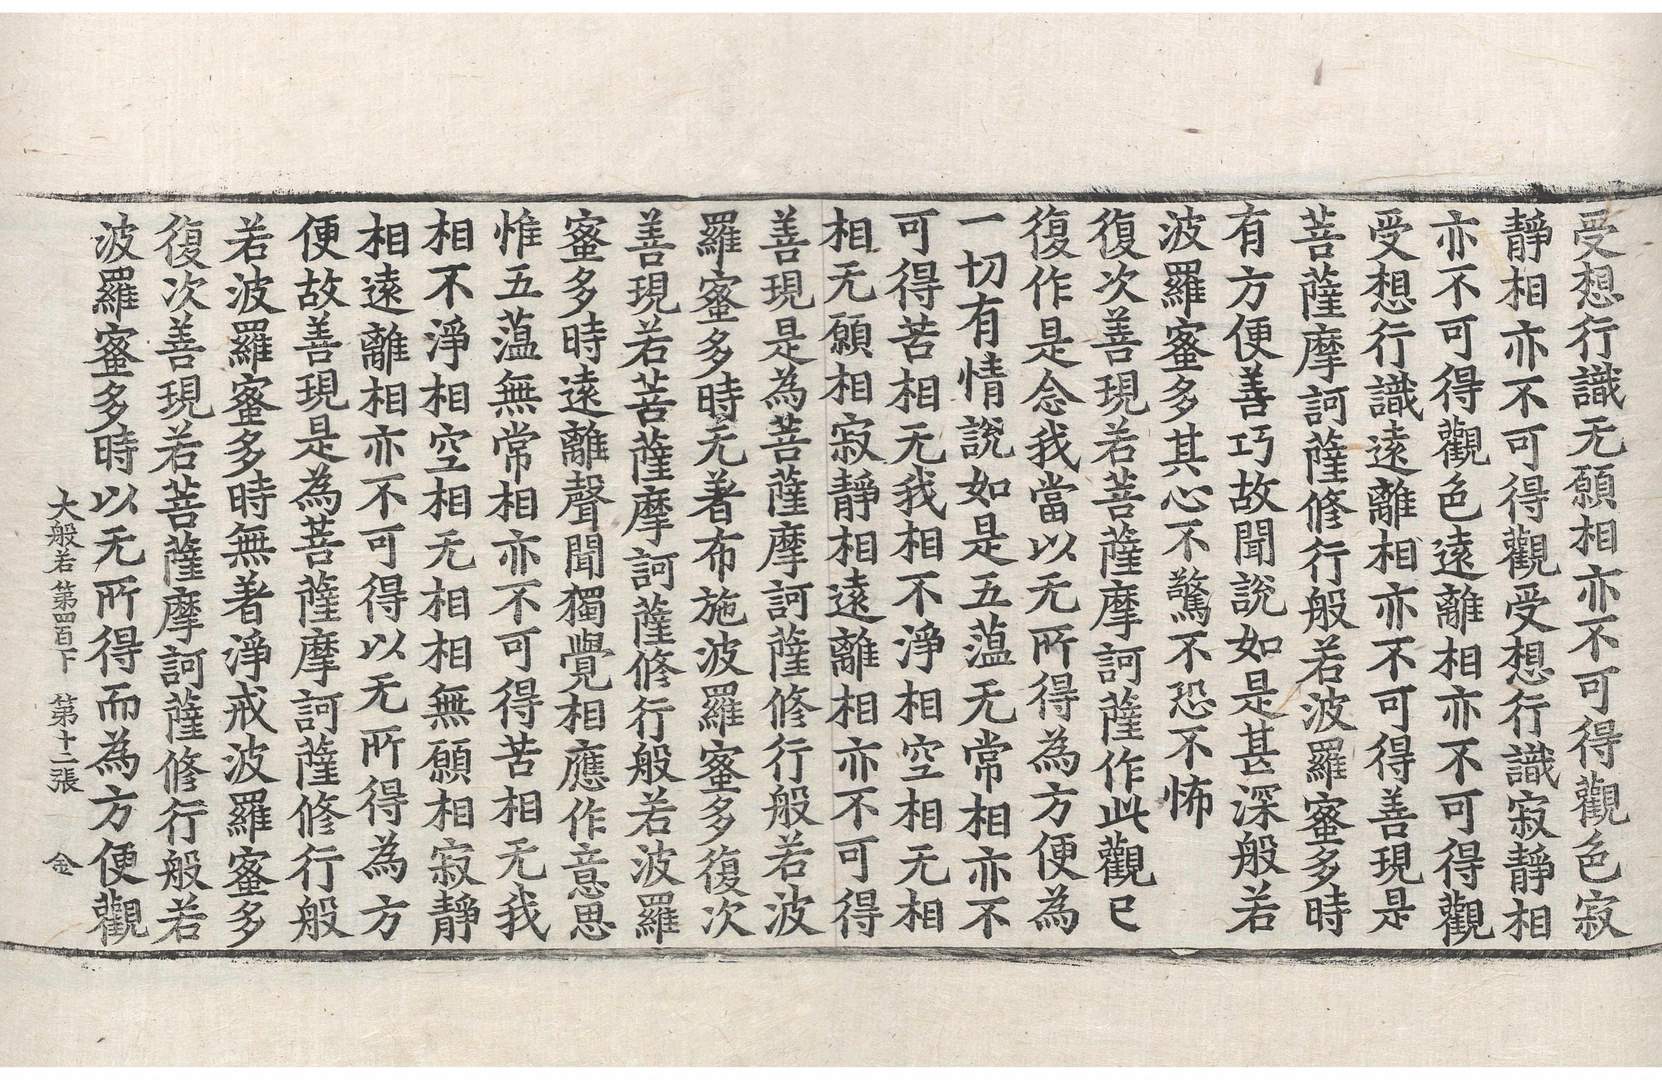 受想行識无願相亦不可得觀色寂
靜相亦不可得觀受想行識寂靜相
亦不可得觀色遠離相亦不可得觀
受想行識遠離相亦不可得善現是
菩薩摩訶薩修行般若波羅蜜多時
有方便善巧故聞說如是甚深般若
波羅蜜多其心不驚不恐不怖
復次善現若菩薩摩訶薩作此觀已
復作是念我當以无所得為方便為
一切有情說如是五蕰无常相亦不
可得苦相无我相不淨相空相无相
相无願相寂靜相遠離相亦不可得
善現是為菩薩摩訶薩修行般若波
羅蜜多時无著布施波羅蜜多復次
善現若菩薩摩訶薩修行般若波羅
蜜多時遠離聲聞獨覺相應作意思
惟五蕰無常相亦不可得苦相无我
相不淨相空相无相相無願相寂靜
相遠離相亦不可得以无所得為方
便故善現是為菩薩摩訶薩修行般
若波羅蜜多時無著淨戒波羅蜜多
復次善現若菩薩摩訶薩修行般若
波羅蜜多時以无所得而為方便觀
大般若 第四百下 第十二張 金